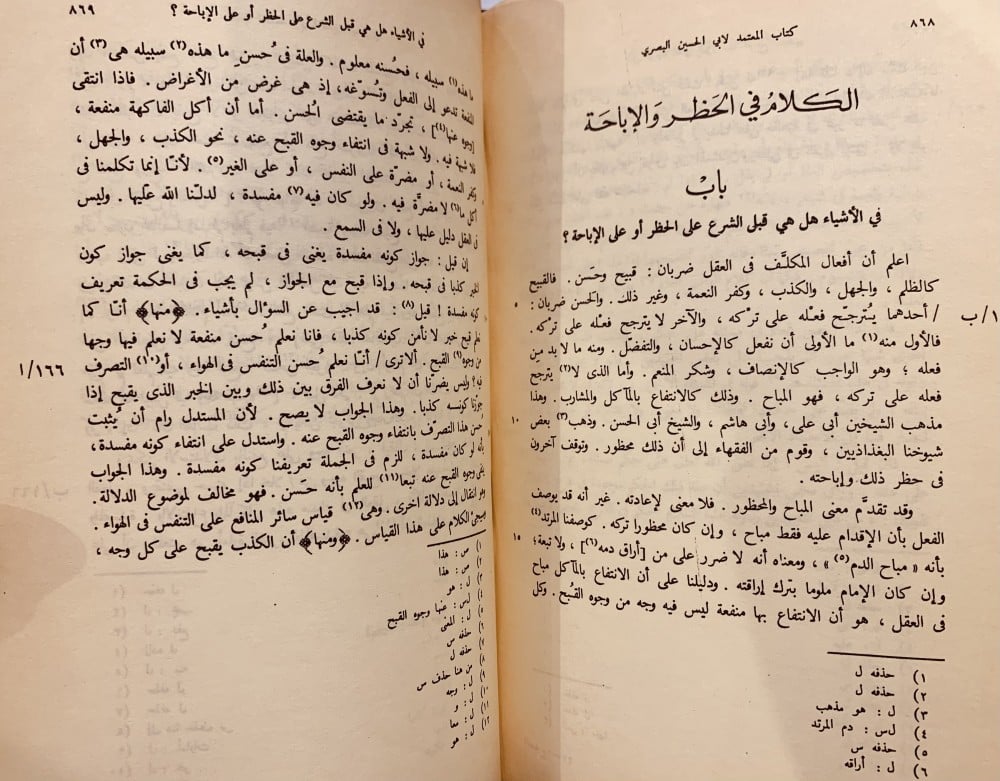 ٨٦٨
كتاب المعتمد لابي الحسين البصري
الكلام في الحظر والإباحة
باب
في الأشياء هل هي قبل الشرع على الحظر أو على الإباحة ؟
اعلم أن أفعال المكلَّف فى العقل ضربان : قبيح وحَسن . فالقبيح
كالظلم ، والجهل ، والكذب ، وكفر النعمة ، وغير ذلك . والحسن ضربان : ٥
١/ب / أحدهما يُترجح فعله على تركه ، والآخر لا يترجح فعله على تركه .
فالأول منه(١) ما الأولى أن نفعل كالإحسان ، والتفضّل . ومنه ما لا بد من
فعله ؛ وهو الواجب كالإنصاف ، وشكر المنعم . وأما الذى لا(٢) يترجح
فعله على تركه ، فهو المباح . وذلك كالانتفاع بالمآكل والمشارب . وهذا
مذهب الشيخين أبي على ، وأبي هاشم ، والشيخ أبي الحسن . وذهب(٣) بعض ١٠
شيوخنا البغداذيين ، وقوم من الفقهاء إلى أن ذلك محظور . وتوقف آخرون
فى حظر ذلك وإباحته .
وقد تقدَّم معنى المباح والمحظور . فلا معنى لإعادته . غير أنه قد يوصف
الفعل بأن الإقدام عليه فقط مباح ، وإن كان محظورا تركه . كوصفنا المرتد(٤)
بأنه « مباح الدم(٥) » ، ومعناه أنه لا ضرر على من [أراق دمه(٦)] ، ولا تبعة ؛ ١٥
وإن كان الإمام ملوما بترك إراقته . ودليلنا على أن الانتفاع بالمآكل مباح
فى العقل ، هو أن الانتفاع بها منفعة ليس فيه وجه من وجوه القُبح . وكل
١) حذفه ل
٢) حذفه ل
٣) ل : هو مذهب
٤) ل س : دم المرتد
٥) حذفه س
٦) ل : أراقه
في الأشياء هل هي قبل الشرع على الحظر أو على الإباحة ؟ ٨٦٩
ما هذه(١) سبيله ، فحُسنه معلوم . والعلة فى حُسن ما هذه(٢) سبيله هى(٣) أن
المنفعة تدعو إلى الفعل وتُسوّغه ، إذ هى غرض من الأغراض . فاذا انتفى
[وجوه عنها(٤)] ، تجرّد ما يقتضى الحُسن . أما أن أكل الفاكهة منفعة ،
فلا شبهة فيه . ولا شبهة فى انتفاء وجوه القبح عنه ، نحو الكذب ، والجهل ،
وكفر النعمة ، أو مضرّة على النفس ، أو على الغير(٥) . لأنّا إنما تكلمنا فى
أكل ما(٦) لا مضرَّة فيه . ولو كان فيه(٧) مفسدة ، لدلّنا الله عليها . وليس
فى العقل دليل عليها ، ولا فى السمع .
إن قيل : جواز كونه مفسدة يغنى فى قبحه ، كما يغنى جواز كون
الخبر كذبا فى قبحه . وإذا قبح مع الجواز ، لم يجب فى الحكمة تعريف
كونه مفسدة ! قيل(٨) : قد اجيب عن السؤال بأشياء . ﴿منها﴾ أنّا كما
نعلم قبح خبر لا نأمن كونه كذبا ، فانا نعلم حُسن منفعة لا نعلم فيها وجها
من وجوه(٩) القبح . ألا ترى / أنّا نعلم حُسن التنفس فى الهواء ، أو(١٠) التصرف ١٦٦/ا
فيه ؟ وليس يضرّنا أن لا نعرف الفرق بين ذلك وبين الخبر الذى يقبح إذا
جوّزنا كونه كذبا . وهذا الجواب لا يصح . لأن المستدل رام أن يُثبت
حُسن هذا التصرّف بانتفاء وجوه القبح عنه . واستدل على انتفاء كونه مفسدة ،
بأنه لو كان مفسدة ، للزم فى الجملة تعريفنا كونه مفسدة . وهذا الجواب
ينفى وجوه القبح عنه تبعا(١١) للعلم بأنه حَسن . فهو مخالف لموضوع الدلالة .
وهو انتقال إلى دلالة اخرى . وهى(١٢) قياس سائر المنافع على التنفس فى الهواء .
وسيجئ الكلام على هذا القياس . ﴿ومنها﴾ أن الكذب يقبح على كل وجه ،
١) س : هذا
٢) س : هذا
٣) ل : هو
٤) ل س : عنها وجوه القبح
٥) ل : المغنى
٦) حذفه س
٧) حذفه ل
٨) من هنا حذف س
٩) ل : وجه
١٠) ل : و
١١) ل : معا
١٢) ل : هو